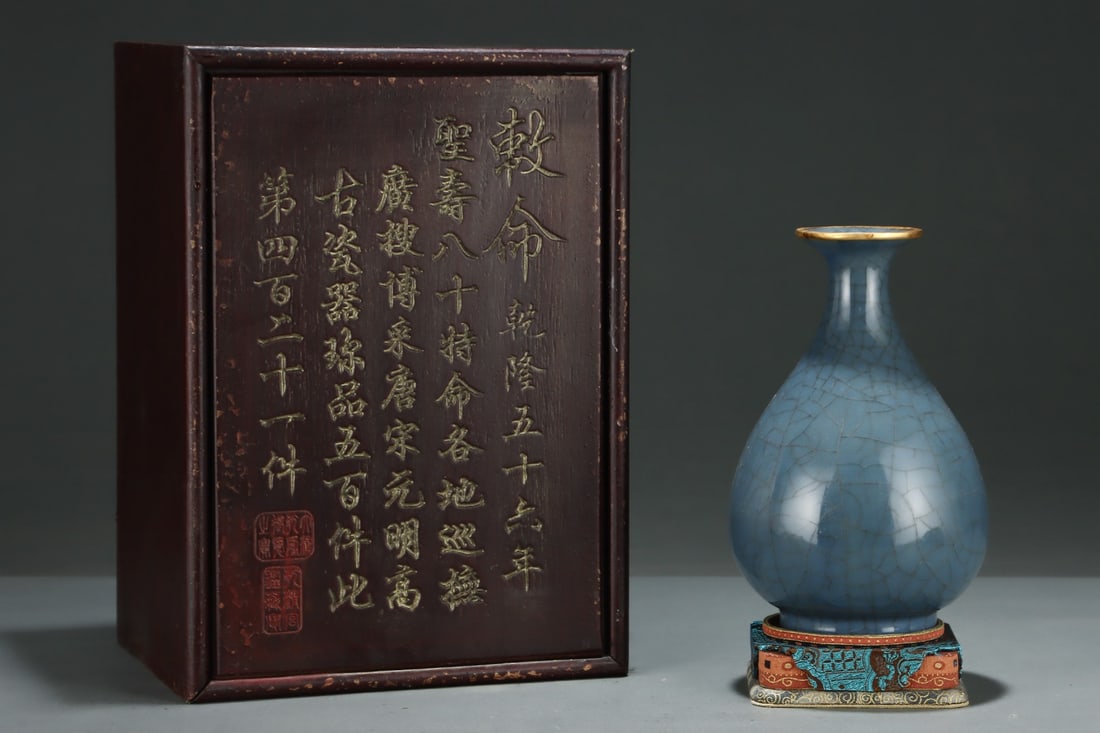 敕命乾隆五十六年
聖壽八十特命各地巡撫
廣搜博采唐宋元明高
古瓷器珎品五百件此
第四百二十一件